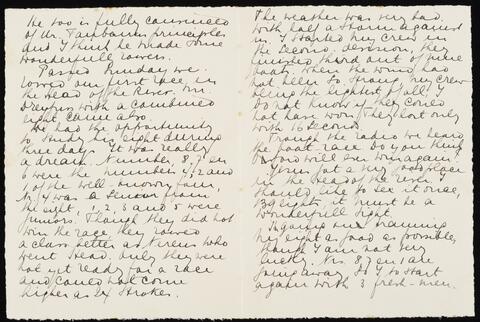 He too is fully convinced
of Mr. Fairbairn principles
and I think he made some
wonderfull rowers.
Passed Sunday we
rowed our first race, in
the Head of the River. Mr.
Dreyfus with a combined
eight, came also.
We had the opportunity
to study his eight during
three days. It was really
a dream. Number, 8, 7 en
6 were the numbers 4, 2 and
1 of the well-known four,
Nr. 4 was a Senior from
the eight, 1, 2, 3 and 5 were
juniors. Though they did not
win the race, they rowed
a class better as Nereus who
went Head. Only they were
not yet ready for a race
and could not come
higher as 24 strokes.
The weather was very bad.
With half a storm against
us. I started my crew in
the second division, they
finished third out of nine
boats. When the wind had
not been so strong, my crew
being the lightest of all, I
do not know if they could
not have won. They lost only
with 16 second.
Trough the radio we heard
the boat race. Do you think
Oxford will ever win again?
Jesus got a very good place
in the head of the river. I
should like to see it once,
139 eights, it must be a
wonderfull sight.
I again am training
my eight as good as possible,
though I am not very
lucky. Nrs. 8, 7 en 1 are
going away. So I to start
again with 3 fresh-men.